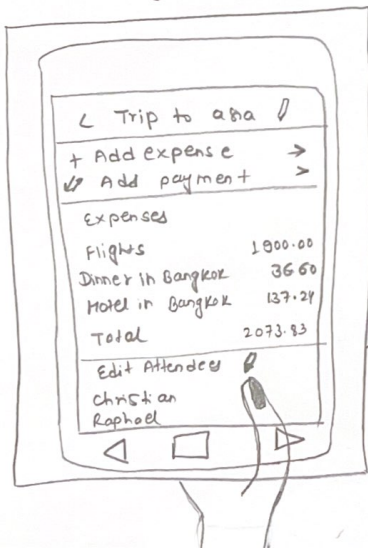 < Trip to asia
+ Add expense →
Add payment >
Expenses
Flights 1900.00
Dinner in Bangkok 36.60
Hotel in Bangkok 137.24
Total 2073.83
Edit Attendees
Christian
Raphael